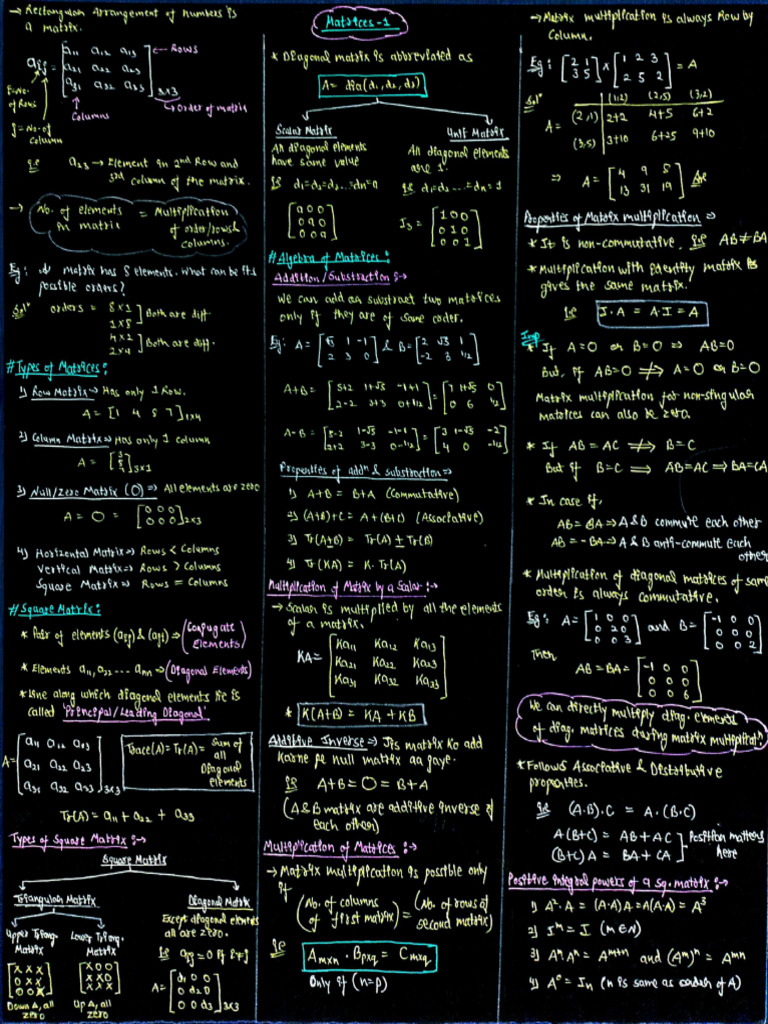 Matrices-1
→ Rectangular Arrangement of numbers is
a matrix.
aij = [a11 a12 a13
a21 a22 a23
a31 a32 a33]3×3
← Rows
Order of matrix
Columns
i=No.
of Rows
j=No.of
Column
i.e a23 → Element in 2nd Row and
3rd column of the matrix.
→ No. of elements = Multiplication
in matrix of order/rows&
columns.
Eg: A matrix has 8 elements. What can be its
possible orders?
Solⁿ orders = 8×1
1×8 ] Both are diff.
4×2
2×4 ] Both are diff.
# Types of Matrices:
1) Row Matrix → Has only 1 Row.
A = [1 4 5 7]1×4
2) Column Matrix → Has only 1 column
3×1
3) Null/Zero Matrix (O) ⇒ All elements are zero
A = O = [0 0 0
0 0 0]2×3
4) Horizontal Matrix ⇒ Rows < Columns
Vertical Matrix ⇒ Rows > Columns
Square Matrix ⇒ Rows = Columns
# Square Matrix:
* Pair of elements (aij) & (aji) ⇒ (Conjugate
Elements)
* Elements a11, a22 ---- ann ⇒ (Diagonal Elements)
* Line along which diagonal elements lie is
called 'Principal/Leading Diagonal'
A = [a11 a12 a13
a21 a22 a23
a31 a32 a33]3×3
Trace(A) = Tr(A) = Sum of
all
Diagonal
elements
Tr(A) = a11 + a22 + a33
Types of Square Matrix :→
Square Matrix
Triangular Matrix
Upper Triang.
Matrix
[x x x
0 x x
0 0 x]
Down Δ, all
zero
Lower Triang.
Matrix
[x 0 0
x x 0
x x x]
Up Δ, all
zero
Diagonal Matrix
Except diagonal elements
all are zero.
ie aij = 0 if i≠j
A = [d1 0 0
0 d2 0
0 0 d3]3×3
* Diagonal matrix is abbreviated as
A = dia(d1, d2, d3)
Scalar Matrix
All diagonal elements
have same value
ie d1=d2=d3...=dn=a
[a 0 0
0 a 0
0 0 a]
Unit Matrix
All diagonal elements
are 1.
ie d1=d2 ....=dn=1
I3 = [1 0 0
0 1 0
0 0 1]
# Algebra of Matrices:
Addition/Substraction :→
We can add an substract two matrices
only if they are of same order.
Eg: A = [5 1 -1
2 3 0] & B = [2 √5 1
-2 3 1/2]
A+B = [5+2 1+√5 -1+1
2-2 3+3 0+1/2] = [7 1+√5 0
0 6 1/2]
A-B = [5-2 1-√5 -1-1
2+2 3-3 0-1/2] = [3 1-√5 -2
4 0 -1/2]
Properties of addⁿ & substraction ⇒
1) A+B = B+A (Commutative)
2) (A+B)+C = A+(B+C) (Associative)
3) Tr(A±B) = Tr(A) ± Tr(B)
4) Tr(KA) = K.Tr(A)
Multiplication of Matrix by a Scalar :→
→ Scalar is multiplied by all the elements
of a matrix.
KA = [Ka11 Ka12 Ka13
Ka21 Ka22 Ka23
Ka31 Ka32 Ka33]
* K(A+B) = KA + KB
Additive Inverse ⇒ Jis matrix ko add
karne pe null matrix aa gaye.
ie A+B = O = B+A
(A & B matrix are additive inverse of
each other)
Multiplication of Matrices :→
→ Matrix multiplication is possible only
if
(No. of columns
of first matrix) = (No. of rows of
second matrix)
ie Am×n . Bp×q = Cm×q
Only if (n=p)
→ Matrix multiplication is always Row by
Column.
Eg: [2 1
3 5] × [1 2 3
2 5 2] = A
Solⁿ
(1,2) (2,5) (3,2)
A = (2,1) 2+2 4+5 6+2
(3,5) 3+10 6+25 9+10
⇒ A = [4 9 8
13 31 19] Ans
Properties of Matrix multiplication ⇒
* It is non-commutative. ie AB≠BA
* Multiplication with identity matrix is
gives the same matrix.
ie I.A = A.I = A
Imp
* If A=O or B=O ⇒ AB=O
But, if AB=O ⇏ A=O or B=O
Matrix multiplication for non-singular
matrices can also be zero.
* If AB = AC ⇏ B=C
But if B=C ⇒ AB=AC ⇒ BA=CA
* In case if,
AB = BA ⇒ A & B commute each other
AB = -BA ⇒ A & B anti-commute each
other
* Multiplication of diagonal matrices of same
order is always commutative.
Eg: A = [1 0 0
0 2 0
0 0 3] and B = [-1 0 0
0 0 0
0 0 2]
Then
AB = BA = [-1 0 0
0 0 0
0 0 6]
We can directly multiply diag. elements
of diag. matrices during matrix multiplicatⁿ
* Follows Associative & Distributive
properties.
ie (A.B).C = A.(B.C)
A(B+C) = AB + AC
(B+C)A = BA + CA ] Position matters
here
Positive integral powers of a Sq. matrix :→
1) A².A = (A.A)A = A(A.A) = A³
2) Iᵐ = I (m∈N)
3) AᵐAⁿ = Aᵐ⁺ⁿ and (Aᵐ)ⁿ = Aᵐⁿ
4) A⁰ = In (n is same as order of A)